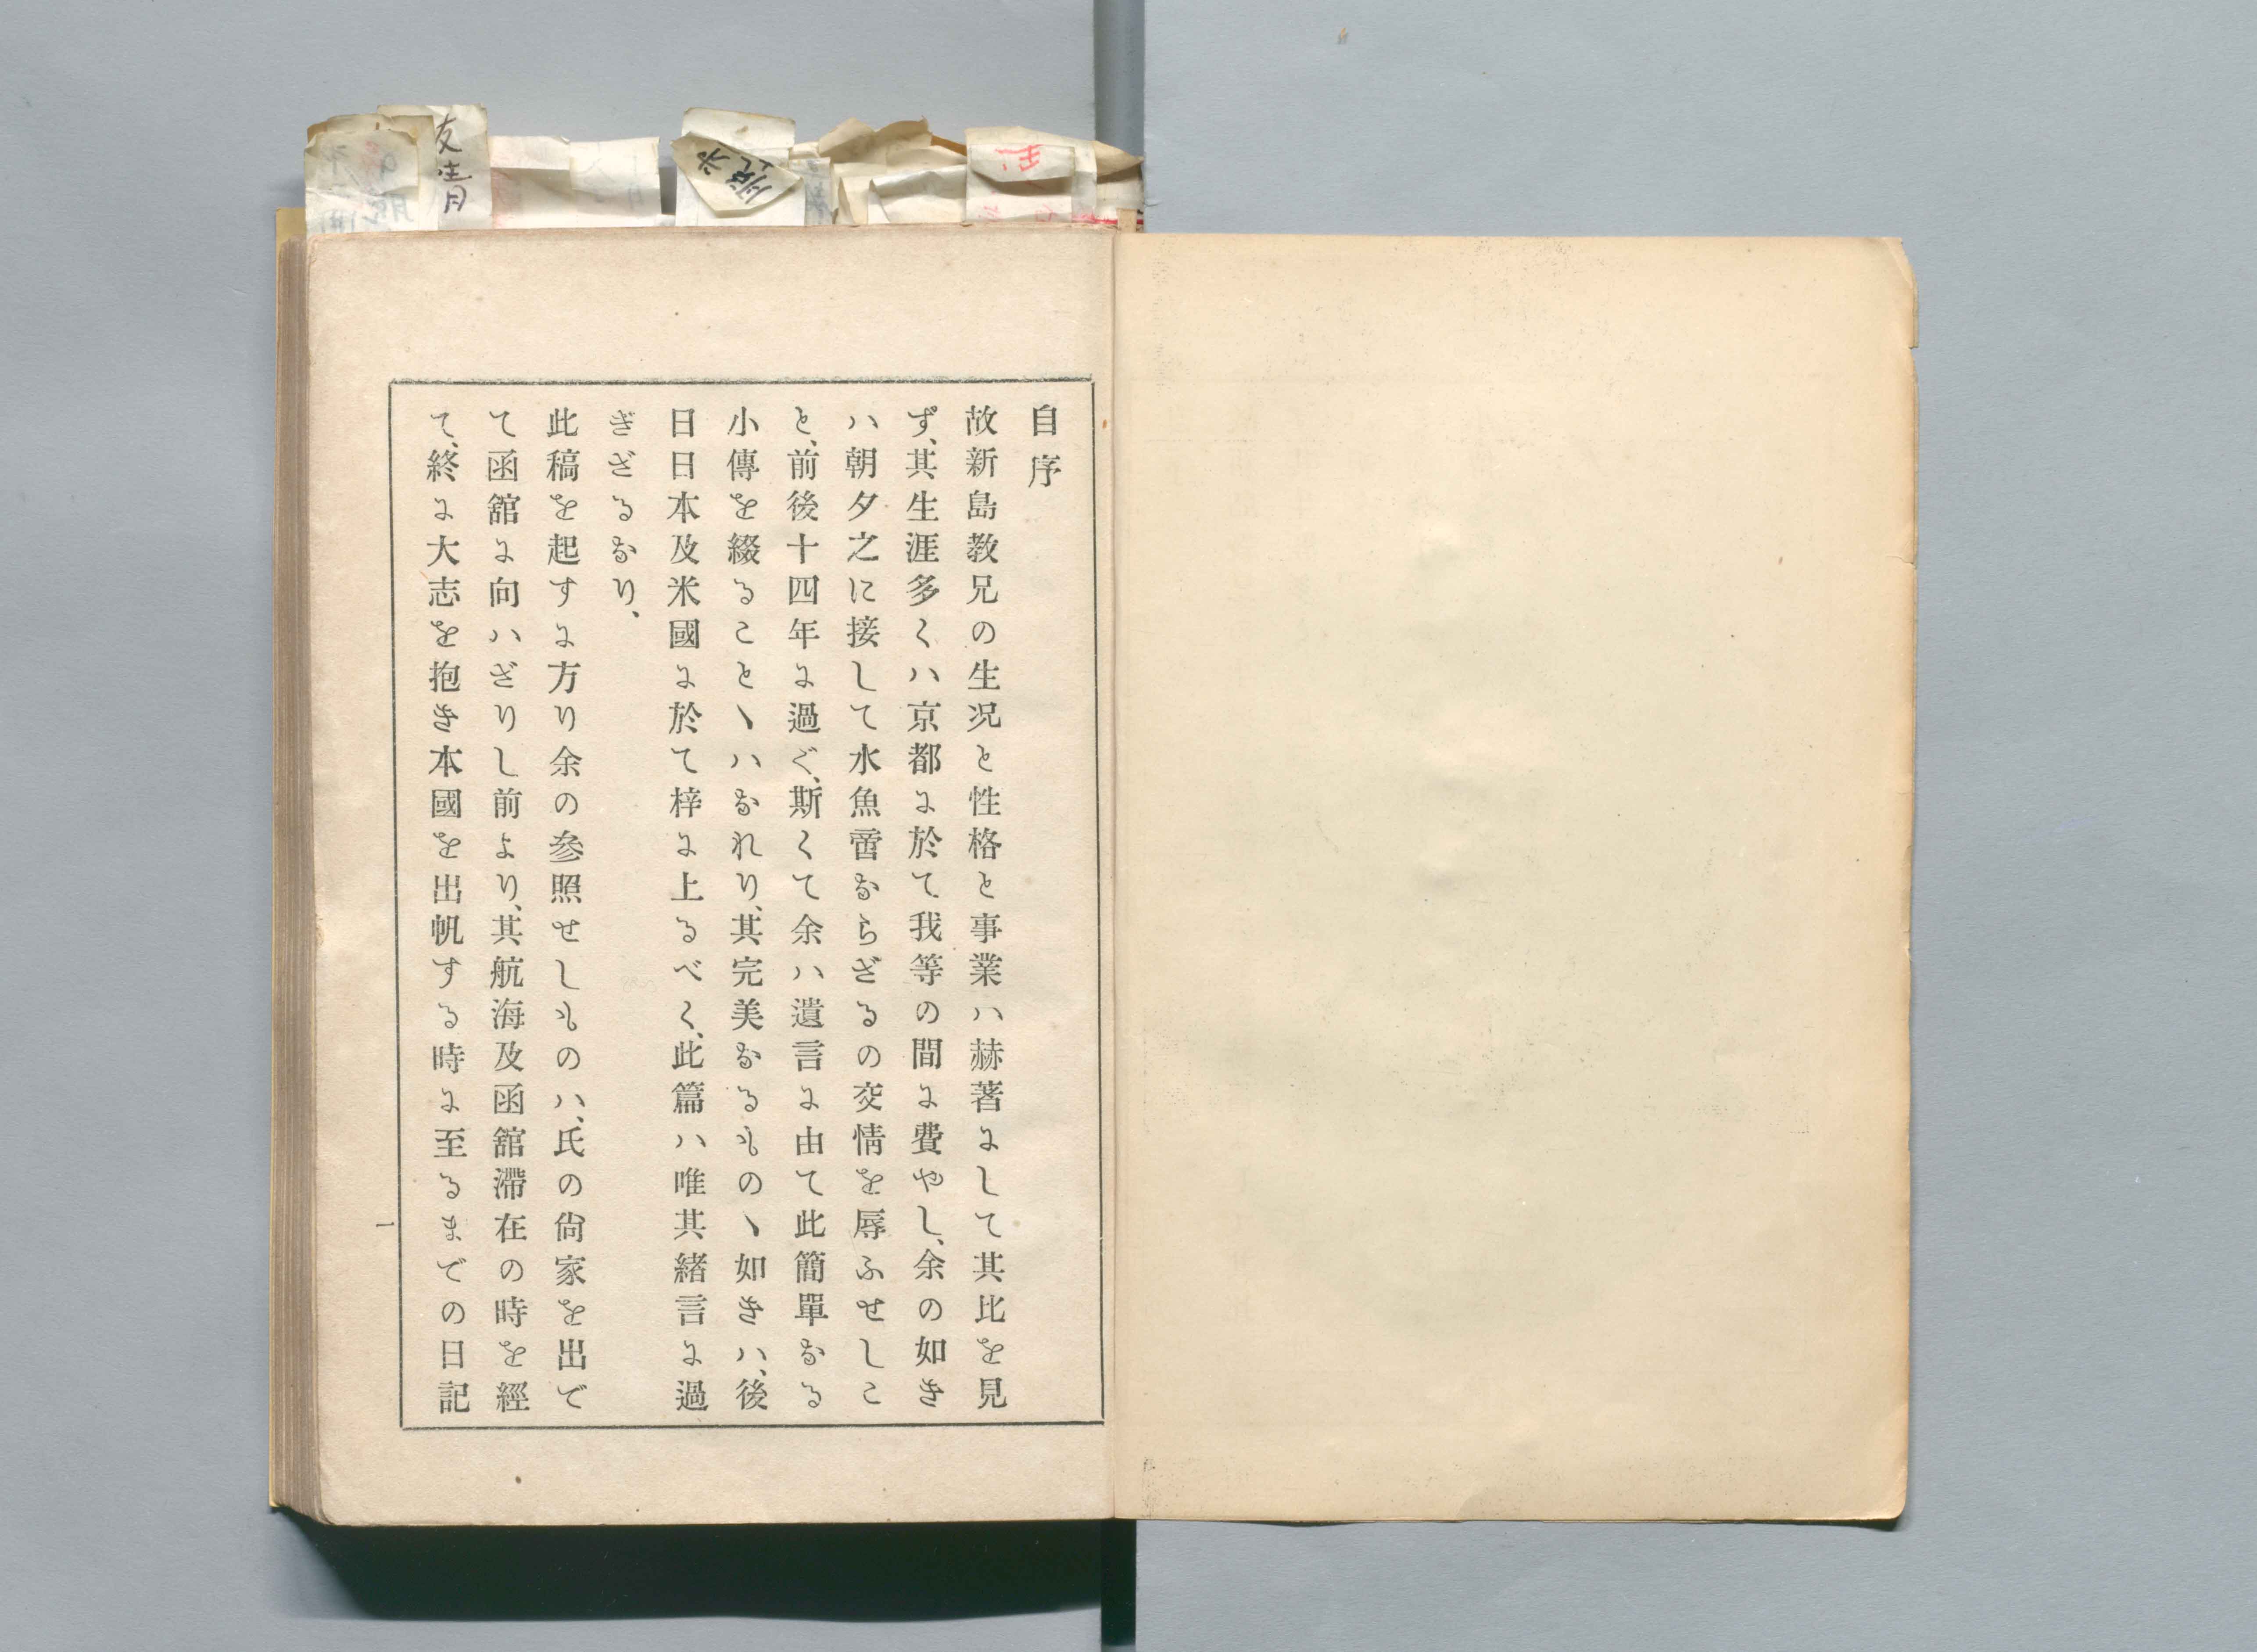 自序
故新島教兄の生況と性格と事業ハ赫著にして其比を見
ず、其生涯多くハ京都に於て我等の間に費やし、余の如き
ハ朝夕之に接して水魚啻ならざるの交情を辱ふせしこ
と、前後十四年に過ぐ、斯くて余ハ遺言に由て此簡單なる
小傳を綴ることヽハなれり、其完美なるものヽ如きハ、後
日日本及米國に於て梓に上るべく、此篇ハ唯其緒言に過
ぎざるなり、
此稿を起すに方り余の参照せしものハ、氏の尙家を出で
て函舘に向ハざりし前より、其航海及函舘滯在の時を經
て、終に大志を抱き本國を出帆する時に至るまでの日記
一
友靑